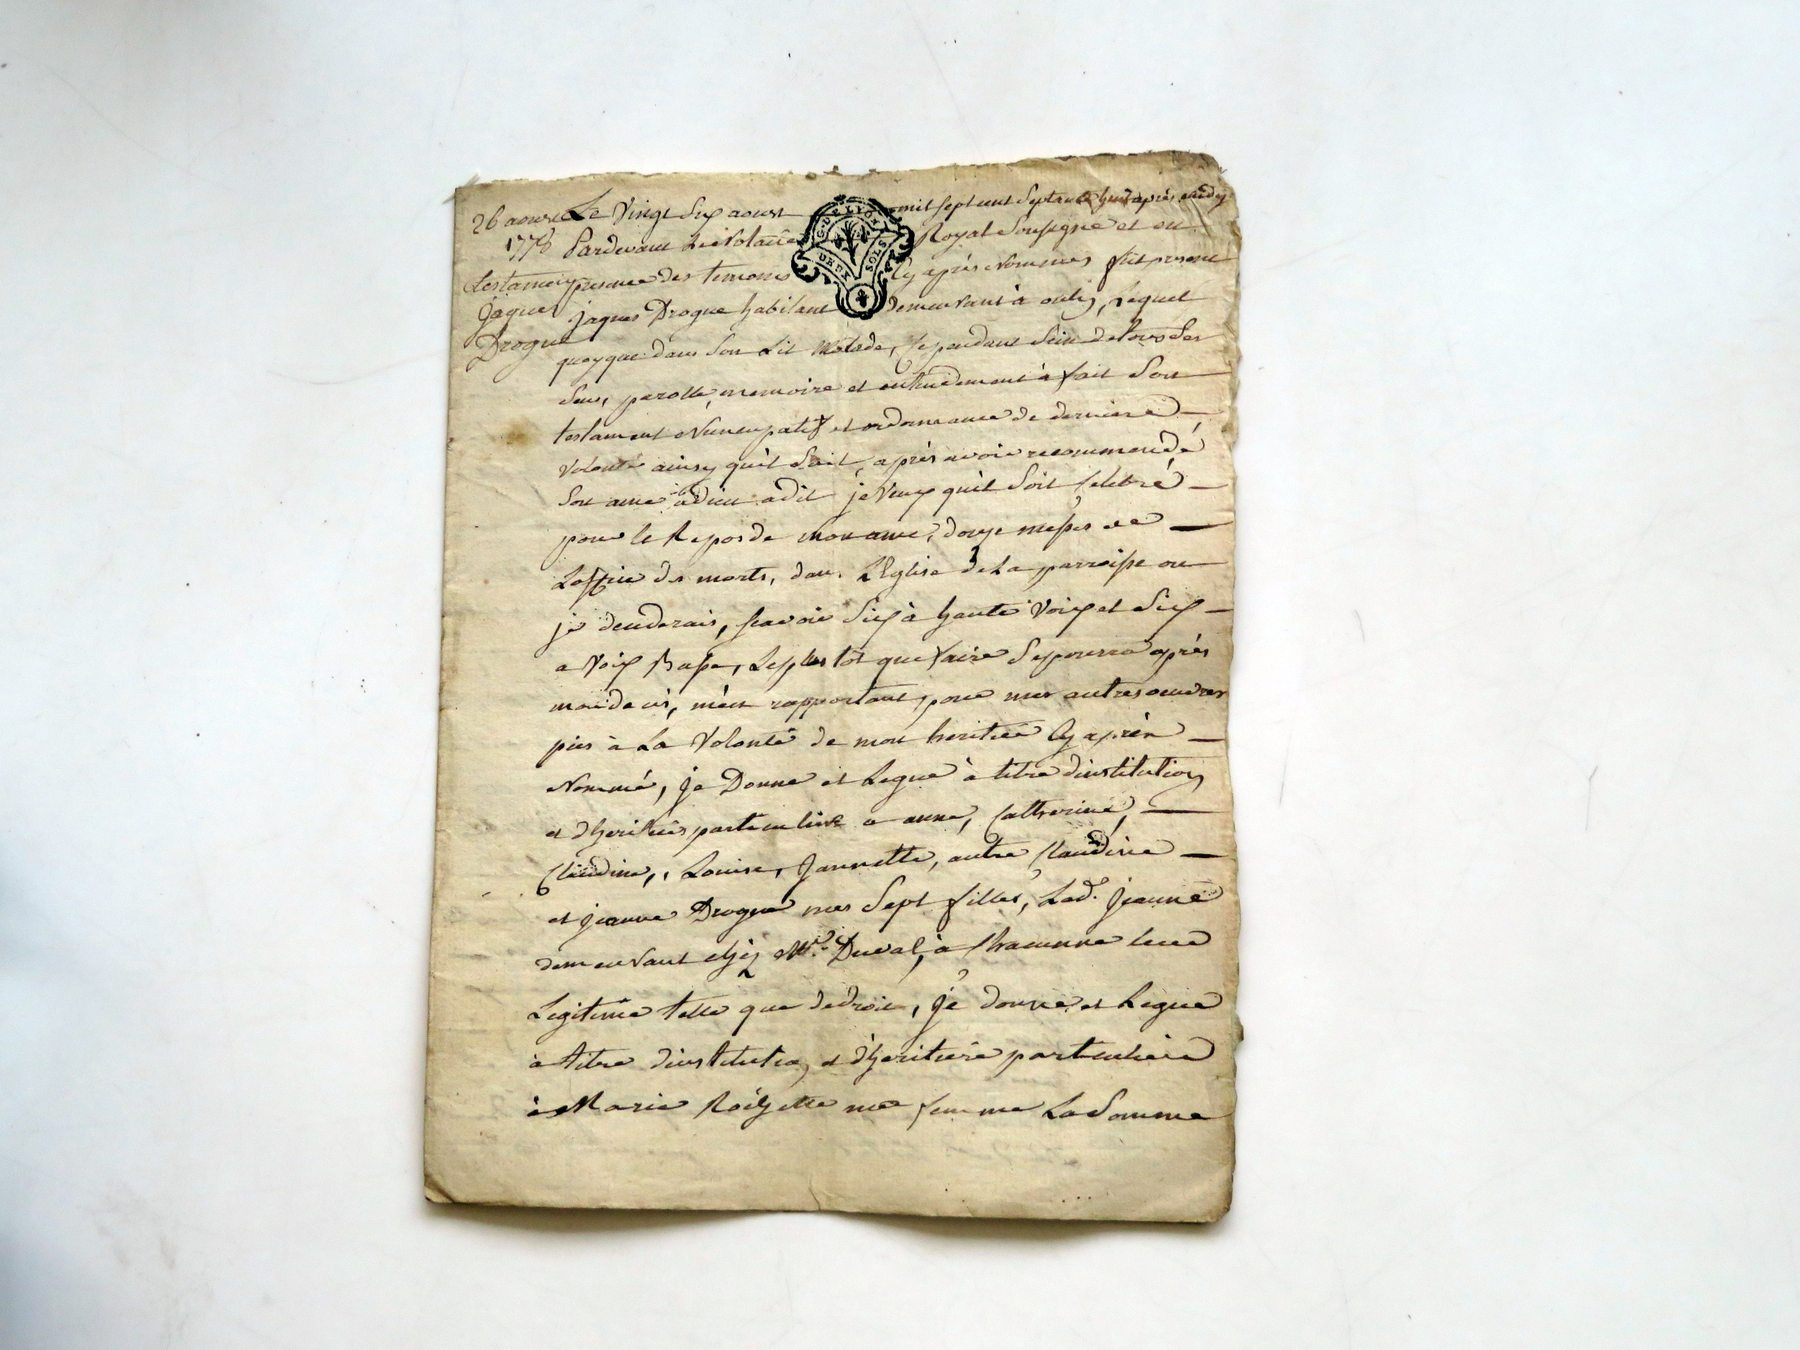 26 aoust
1778
testament
Jaques
Drogue
G. DE LYON
DEUX SOLS
Le Vingt Six aoust mil sept cent Septante huit après midy
Pardevant Le Notaire Royal Soussigné et en
presence des temoins Cy après Nommés fut present
jaques Drogue habitant demeurant à oulins, Lequel
quoyque dans Son Lit Malade, Cependant Sein de tous Ses
Sens, parolle, memoire et entendement à fait Son
testament Nuncupatif et ordonnance de derniere
Volonté ainsy qu'il Suit, après avoir recommandé
Son ame adieu a dit je Veux qu'il Soit Celebré
pour le Repos de mon ame, douze messes et
Loffice des morts, dans L'Eglise de La parroisse ou
je deuderais, scavoir Six à haute Voix et Six
a Voix Basse, Le plus tôt que faire Se pourra après
mon deces, m'en rapportant pour mes autres oeuvres
pies à La Volonté de mon heritier Cy après
Nommé, je Donne et Legue à titre d'institution
et d'heritiere particuliere a anne, Catherine,
Claudine, Louise, Jannette, autre Claudine
et jeanne Drogue mes Sept filles, Lad. jeanne
demeurant chéz Mr. Duval, à Chacunne leur
Legitime telle que de droit, je donne et Legue
à titre d'institution et d'heritiere particuliere
à Marie ma femme La Somme